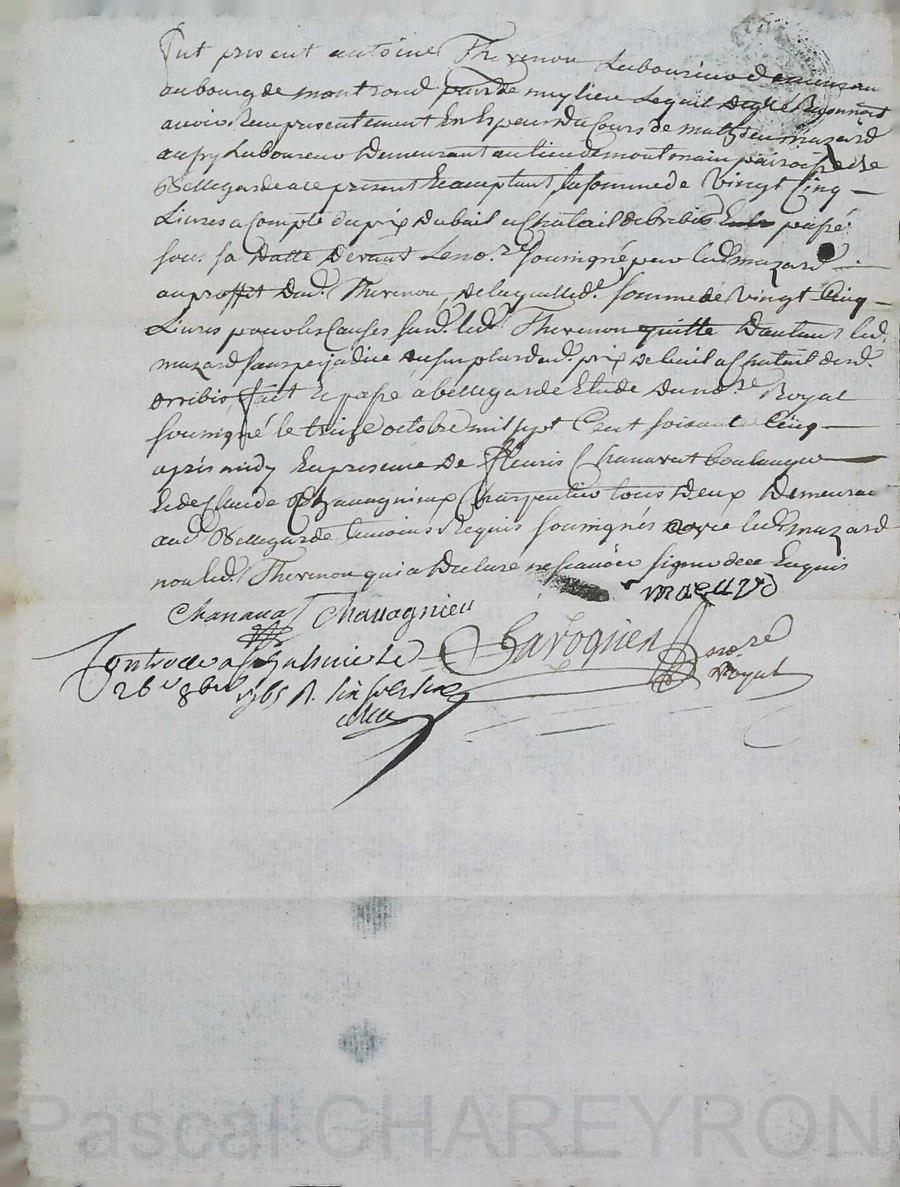 fut present antoine Thevenon Laboureur demeurant
au bourg de montrond parde mylieu Lequel de gré Reconnoit
avoir Reçu presentement En Especes Du Cours de mathieu mazard
aussy Laboureur Demeurant au lieu de montonain paroisse de
Bellegarde a ce present Acceptant La somme de Vingt Cinq
Livres a Compte du prix Du bail a Chatail de brebis passé
sous sa Datte Devant Leno.re soussigné par led. mazard
au proffit dud. Thevenon, De laquelle d. somme de Vingt Cinq
Livres pour les Causes susd. led. Thevenon quitte Dautant led.
mazard sans prejudice du surplus dud. prix De bail a Chatail desd.
brebis, fait Et passé a bellegarde Etude Du no.re Royal
soussigné le treize octobre mil sept Cent soixante Cinq
aprés midy En presence de fleuris Chanavat boulanger
Et de Claude Chavagnieux Charpentier tous Deux Demeurant
aud. Bellegarde temoins Requis soussignés avec led. mazard
non led. Thevenon qui a Declaré ne scavoir signer de ce Enquis
mazard
Chanavat Chavagnieu
Controllé a St Galmier le
26e 8bre 1765 R.
no.re
royal
Pascal CHAREYRON